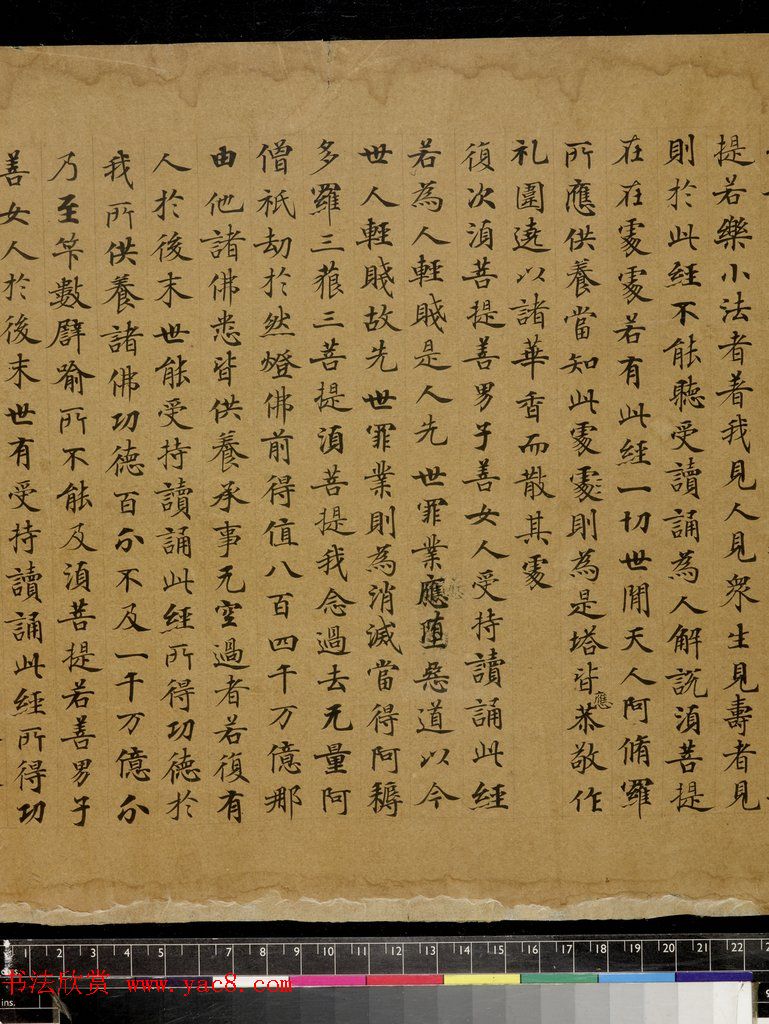 提若樂小法者著我見人見衆生見壽者見
則於此經不能聽受讀誦為人解說湏菩提
在在處處若有此經一切世間天人阿脩羅
所應供養當知此處處則為是塔皆應恭敬作
礼圍遶以諸華香而散其處
復次湏菩提善男子善女人受持讀誦此經
若為人輕賤是人先世罪業應墮惡道以今
世人輕賤故先世罪業則為消滅當得阿耨
多羅三藐三菩提湏菩提我念過去无量阿
僧祇劫於然燈佛前得值八百四千万億那
由他諸佛悉皆供養承事无空過者若復有
人於後末世能受持讀誦此經所得功德於
我所供養諸佛功德百分不及一千万億分
乃至筭數譬喻所不能及湏菩提若善男子
善女人於後末世有受持讀誦此經所得功
1 2 3 4 5 7 8 9 10 11 12 13 14 15 16 17 18 19 20 21 22
ins.
书法欣赏 www.yac8.com